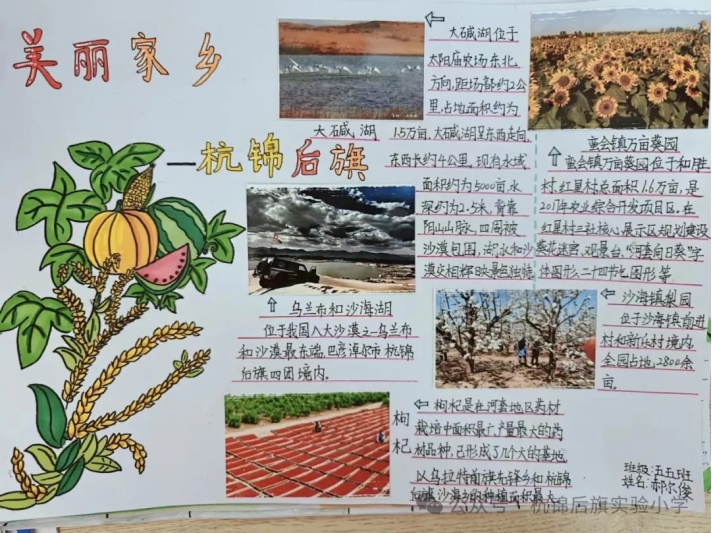 美丽家乡
—杭锦后旗
大碱湖
大碱湖位于
太阳庙农场东北
方向,距场部约2公
里,占地面积约为
1.5万亩,大碱湖呈东西走向,
东西长约4公里,现有水域
面积约为5000亩,水
深约为2.5米,背靠
阴山山脉,四周被
沙漠包围,湖水和沙
漠交相辉映景色独特
蛮会镇万亩葵园
蛮会镇万亩葵园位于和胜
村,红星村总面积1.6万亩,是
2017年农业综合开发项目区,在
红星村三社核心展示区规划建设
葵花迷宫,观景台,“河套向日葵”字
体图形,二十四节气图形等
乌兰布和沙海湖
位于我国八大沙漠之一乌兰布
和沙漠最东端,巴彦淖尔市杭锦
后旗四团境内。
沙海镇梨园
位于沙海镇前进
村和新乐村境内
全园占地2800余
亩。
枸杞
枸杞是在河套地区药材
栽培中面积最广产量最大的药
材品种,已形成了几个大的基地
以乌拉特前旗先锋乡和杭锦
后旗沙海乡的种植面积最大
班级:五五班
姓名:郝尔俊
公众号·杭锦后旗实验小学